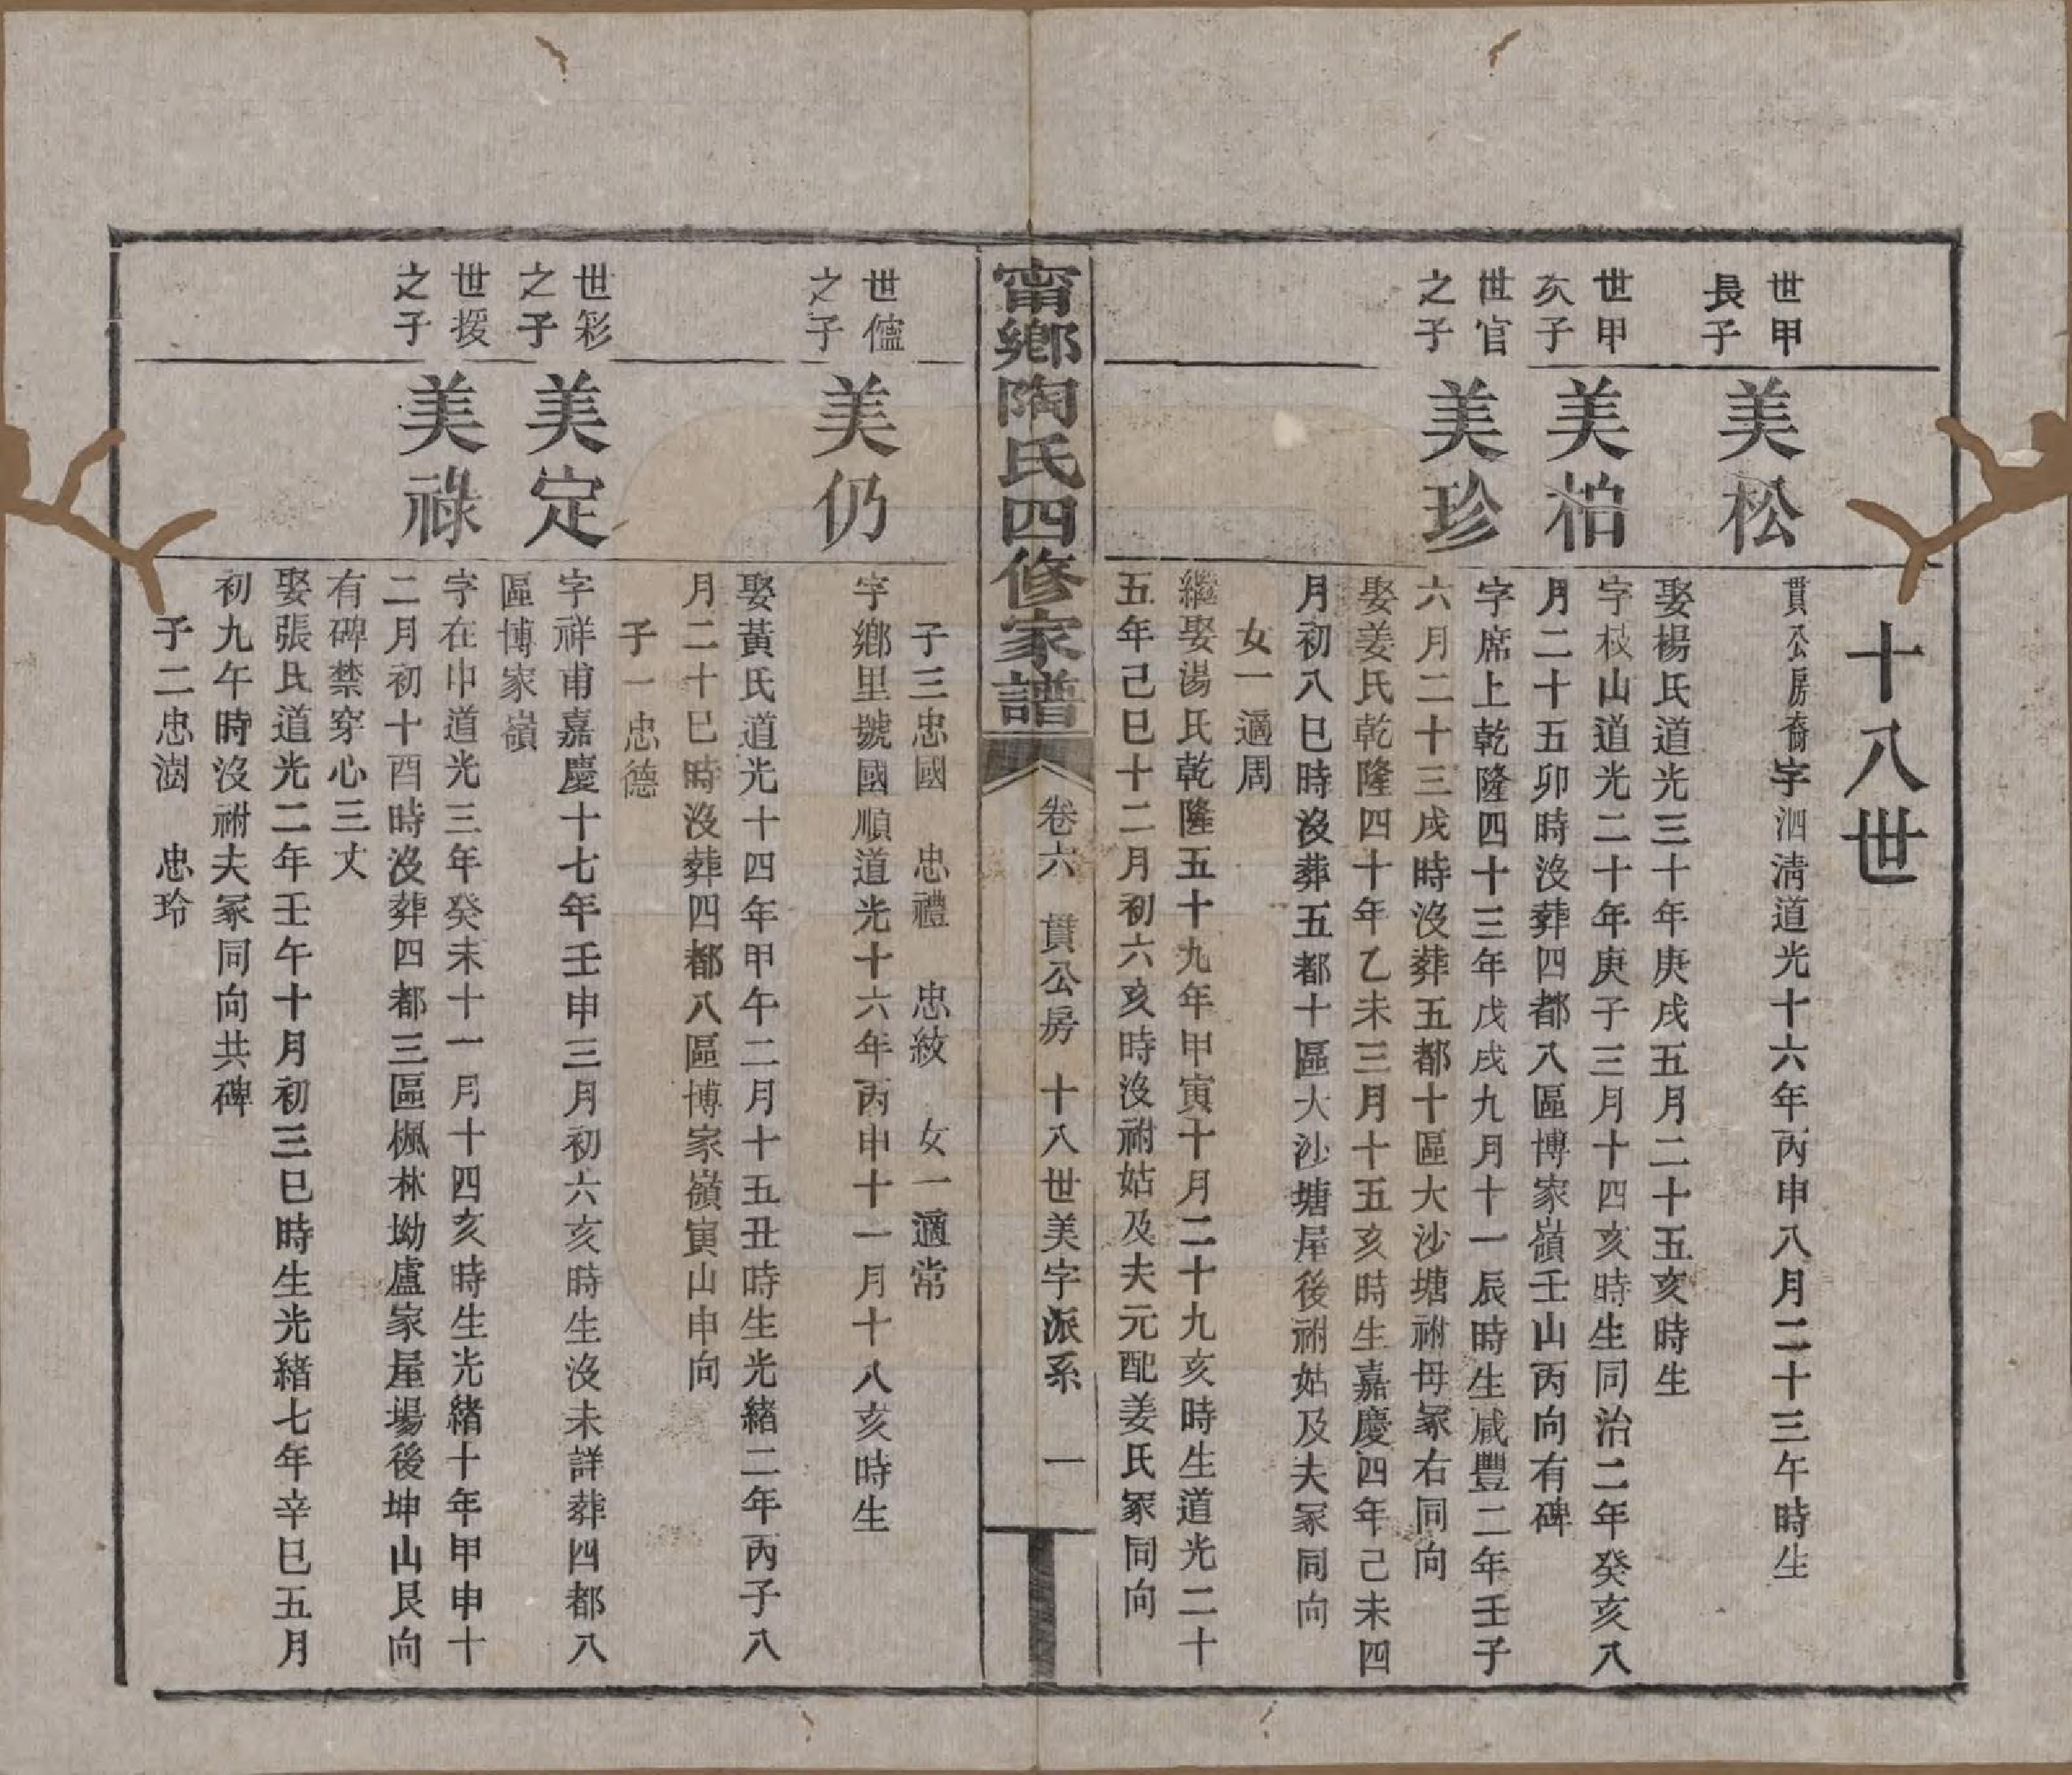 十八世
世甲
長子
美松
貫公房裔字泗清道光十六年丙申八月二十三午時生
娶楊氏道光三十年庚戌五月二十五亥時生
世甲
次子
美柏
字枝山道光二十年庚子三月十四亥時生同治二年癸亥八
月二十五卯時沒葬四都八區博家嶺壬山丙向有碑
世官
之子
美珍
字席上乾隆四十三年戊戌九月十一辰時生咸豐二年壬子
六月二十三戌時沒葬五都十區大沙塘祔母冢右同向
娶姜氏乾隆四十年乙未三月十五亥時生嘉慶四年己未四
月初八巳時沒葬五都十區大沙塘屋後祔姑及夫冢同向
女一適周
繼娶湯氏乾隆五十九年甲寅十月二十九亥時生道光二十
五年己巳十二月初六亥時沒祔姑及夫元配姜氏冢同向
甯鄉陶氏四修家譜
卷六 貫公房 十八世美字派系 一
子三忠國 忠禮 忠紋 女一適常
世儘
之子
美仍
字鄉里號國順道光十六年丙申十一月十八亥時生
娶黃氏道光十四年甲午二月十五丑時生光緒二年丙子八
月二十巳時沒葬四都八區博家嶺寅山申向
子一忠德
世彩
之子
美定
字祥甫嘉慶十七年壬申三月初六亥時生沒未詳葬四都八
區博家嶺
世援
之子
美祿
字在中道光三年癸未十一月十四亥時生光緒十年甲申十
二月初十酉時沒葬四都三區楓林坳盧家屋場後坤山艮向
有碑禁穿心三丈
娶張氏道光二年壬午十月初三巳時生光緒七年辛巳五月
初九午時沒祔夫冢同向共碑
子二忠澍 忠玲